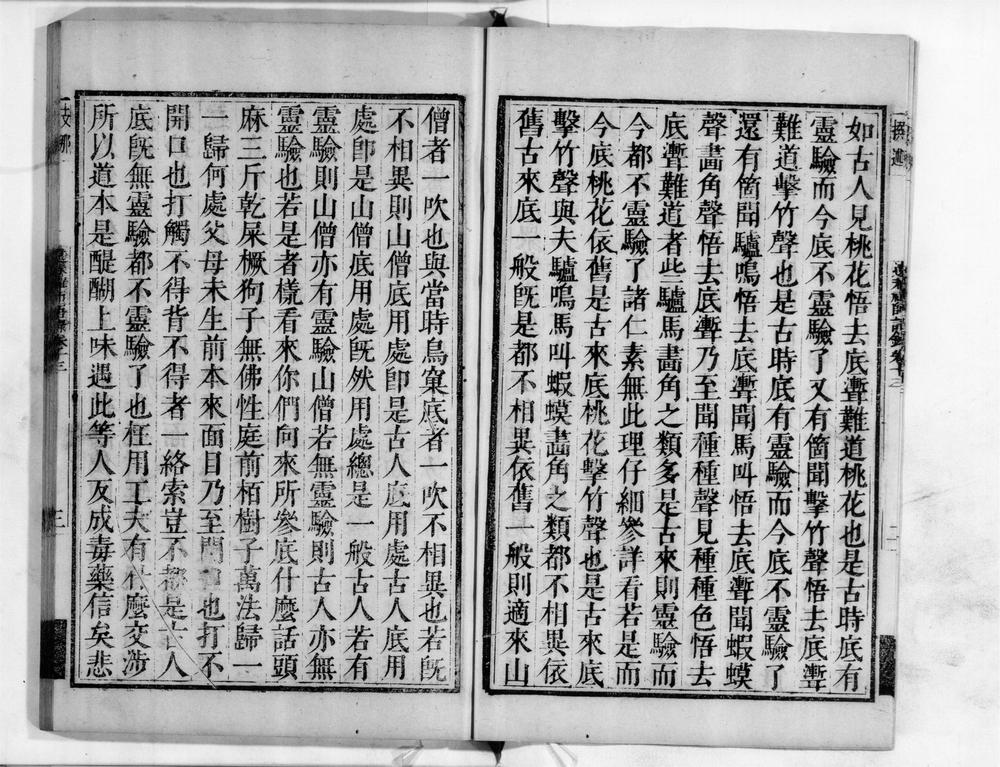 如古人見桃花悟去底蹔難道桃花也是古時底有
靈驗而今底不靈驗了又有箇聞擊竹聲悟去底蹔
難道擊竹聲也是古時底有靈驗而今底不靈驗了
還有箇聞驢鳴悟去底蹔聞馬叫悟去底蹔聞蝦蟆
聲畵角聲悟去底蹔乃至聞種種聲見種種色悟去
底蹔難道者些驢馬畵角之類多是古來則靈驗而
今都不靈驗了諸仁素無此理仔細參詳看若是而
今底桃花依舊是古來底桃花擊竹聲也是古來底
擊竹聲與夫驢鳴馬叫蝦蟆畵角之類都不相異依
舊古來底一般既是都不相異依舊一般則適來山
僧者一吹也與當時鳥窠底者一吹不相異也若既
不相異則山僧底用處卽是古人底用處古人底用
處卽是山僧底用處旣然用處總是一般古人若有
靈驗則山僧亦有靈驗山僧若無靈驗則古人亦無
靈驗也若是者樣看來你們向來所參底什麼話頭
麻三斤乾屎橛狗子無佛性庭前栢樹子萬法歸一
一歸何處父母未生前本來面目乃至開口也打不
開口也打觸不得背不得者一絡索豈不都是古人
底旣無靈驗都不靈驗了也枉用工夫有什麼交涉
所以道本是醍醐上味遇此等人反成毒藥信矣悲
支那
三